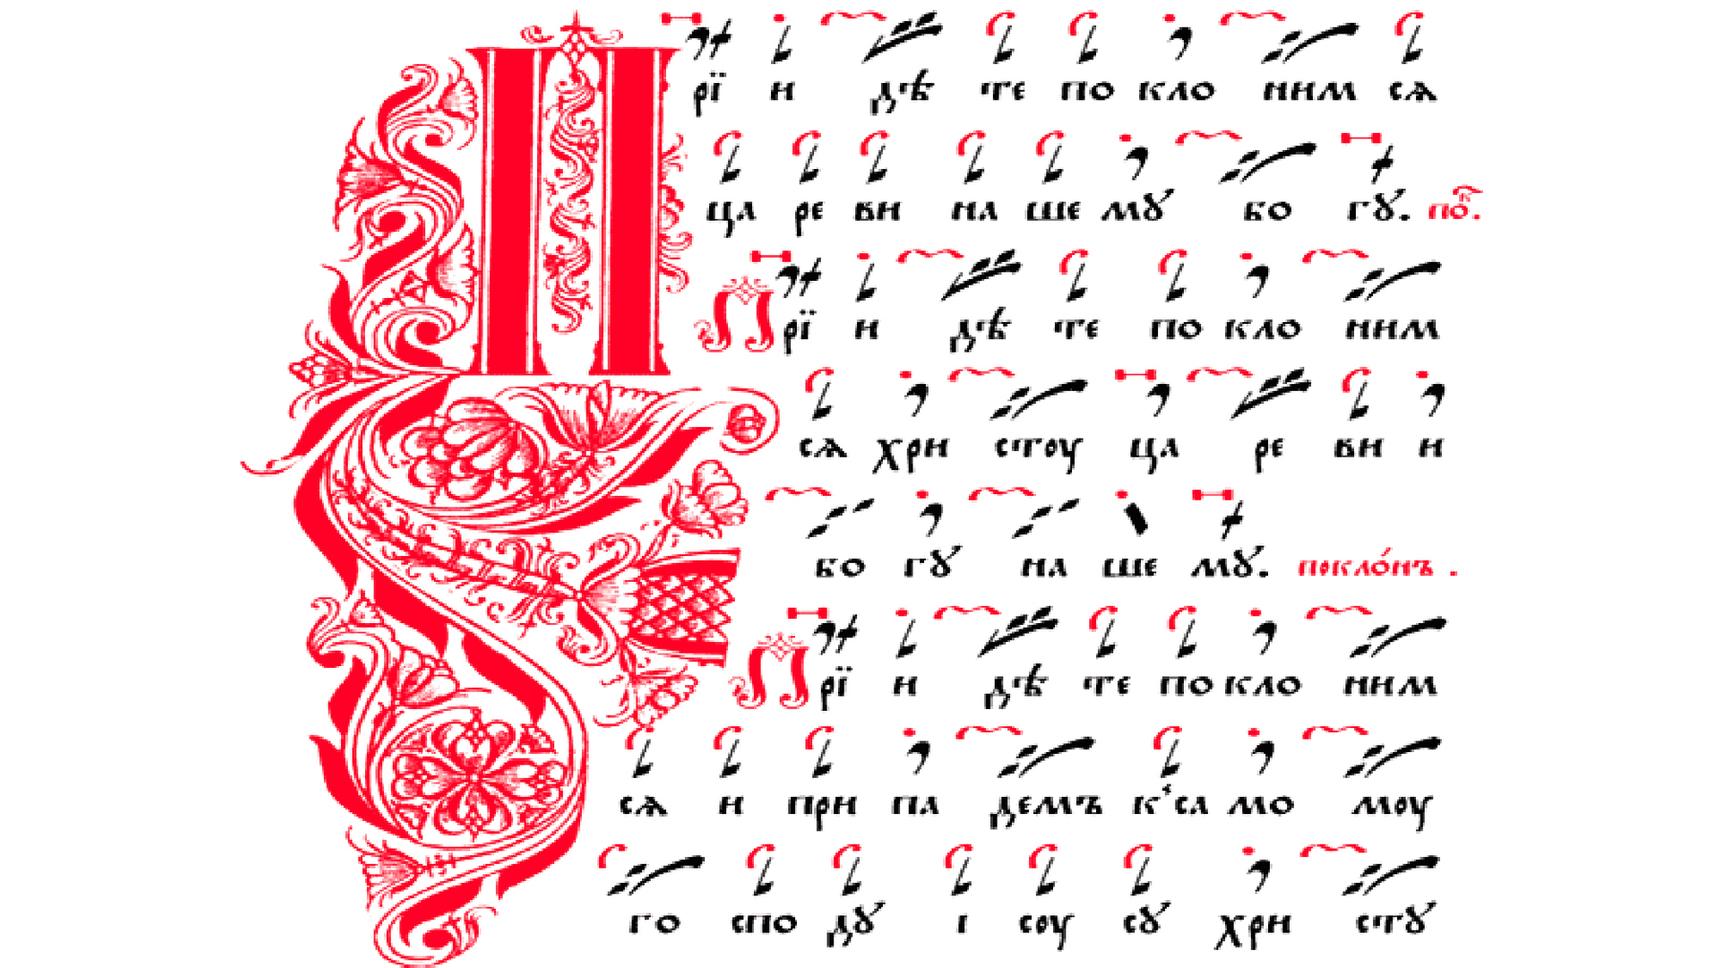 Прї и дѣ те по кло ним сѧ
ца ре ви на ше мꙋ бо гꙋ. по҇.
Прї и дѣ те по кло ним
сѧ хри стоу ца ре ви и
бо гꙋ на ше мꙋ. покло́нъ.
Прї и дѣ те по кло ним
сѧ и при па демъ к̾ са мо моу
го спо дꙋ і соу сꙋ хри стꙋ